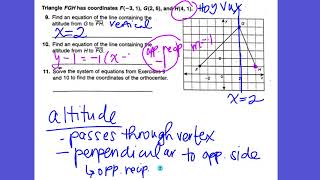 Triangle FGH has coordinates F(−3, 1), G(2, 6), and H(4, 1).
9. Find an equation of the line containing the
altitude from G to FH. vertical
x=2
10. Find an equation of the line containing the
altitude from H to FG.
opp. recip.
m=-1
y-1=-1(x-
-1
11. Solve the system of equations from Exercises 9
and 10 to find the coordinates of the orthocenter.
x=2
altitude
- passes through vertex
- perpendicular to opp. side
↳ opp. recip.